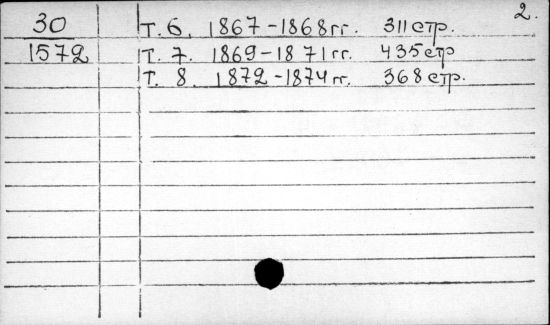 2.
30 Т. 6. 1867-1868гг. 311 стр.
1572 Т. 7. 1869-1871 гг. 435 стр
Т. 8. 1872-1874 гг. 368 стр.